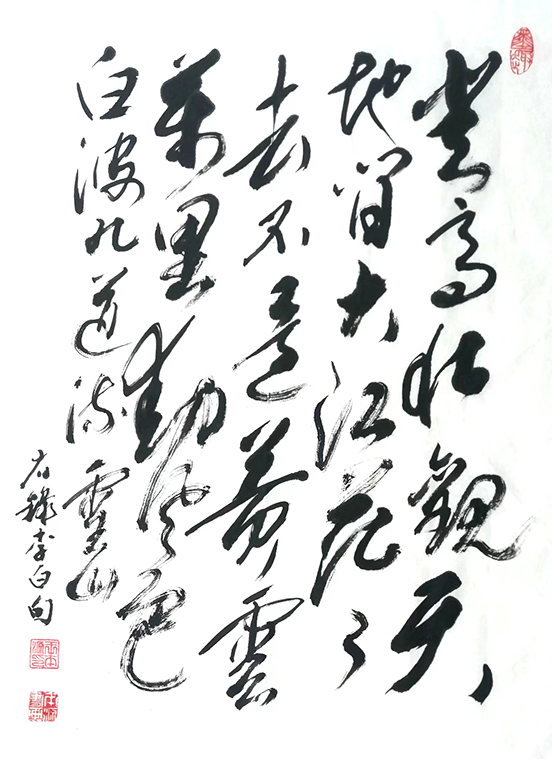 登高壮觀天
地間大江茫々
去不還黄雲
萬里動風色
白波九道流雪山
右錄李白句